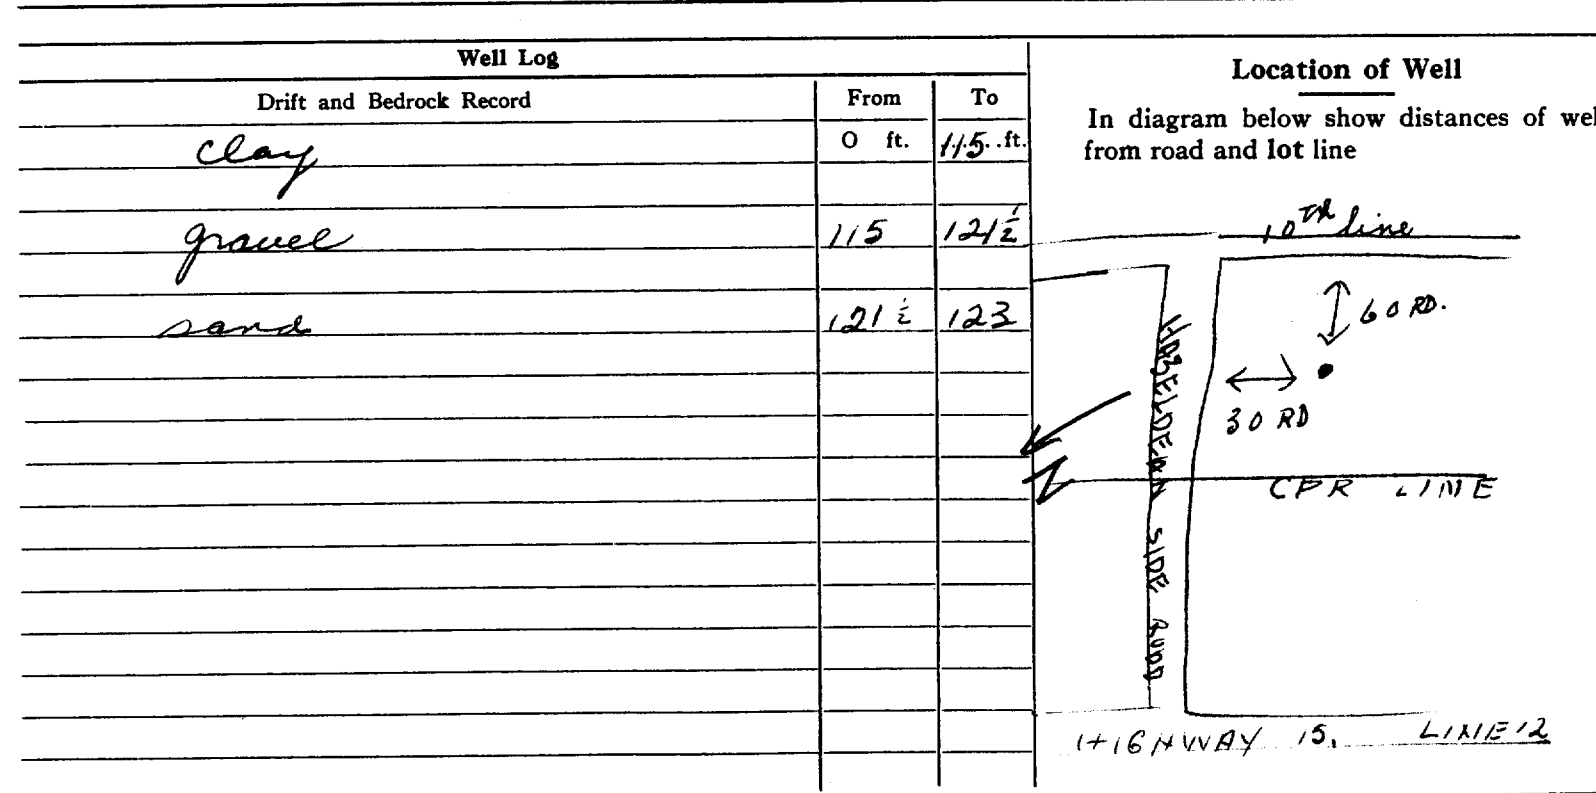 Well Log
Drift and Bedrock Record From To
clay 0 ft. 115 ft.
gravel 115 121½
sand 121½ 123
Location of Well
In diagram below show distances of wel
from road and lot line
10th line
60 RD.
30 RD
HASELDEAN SIDE ROAD
CPR LINE
HIGHWAY 15, LINE 12